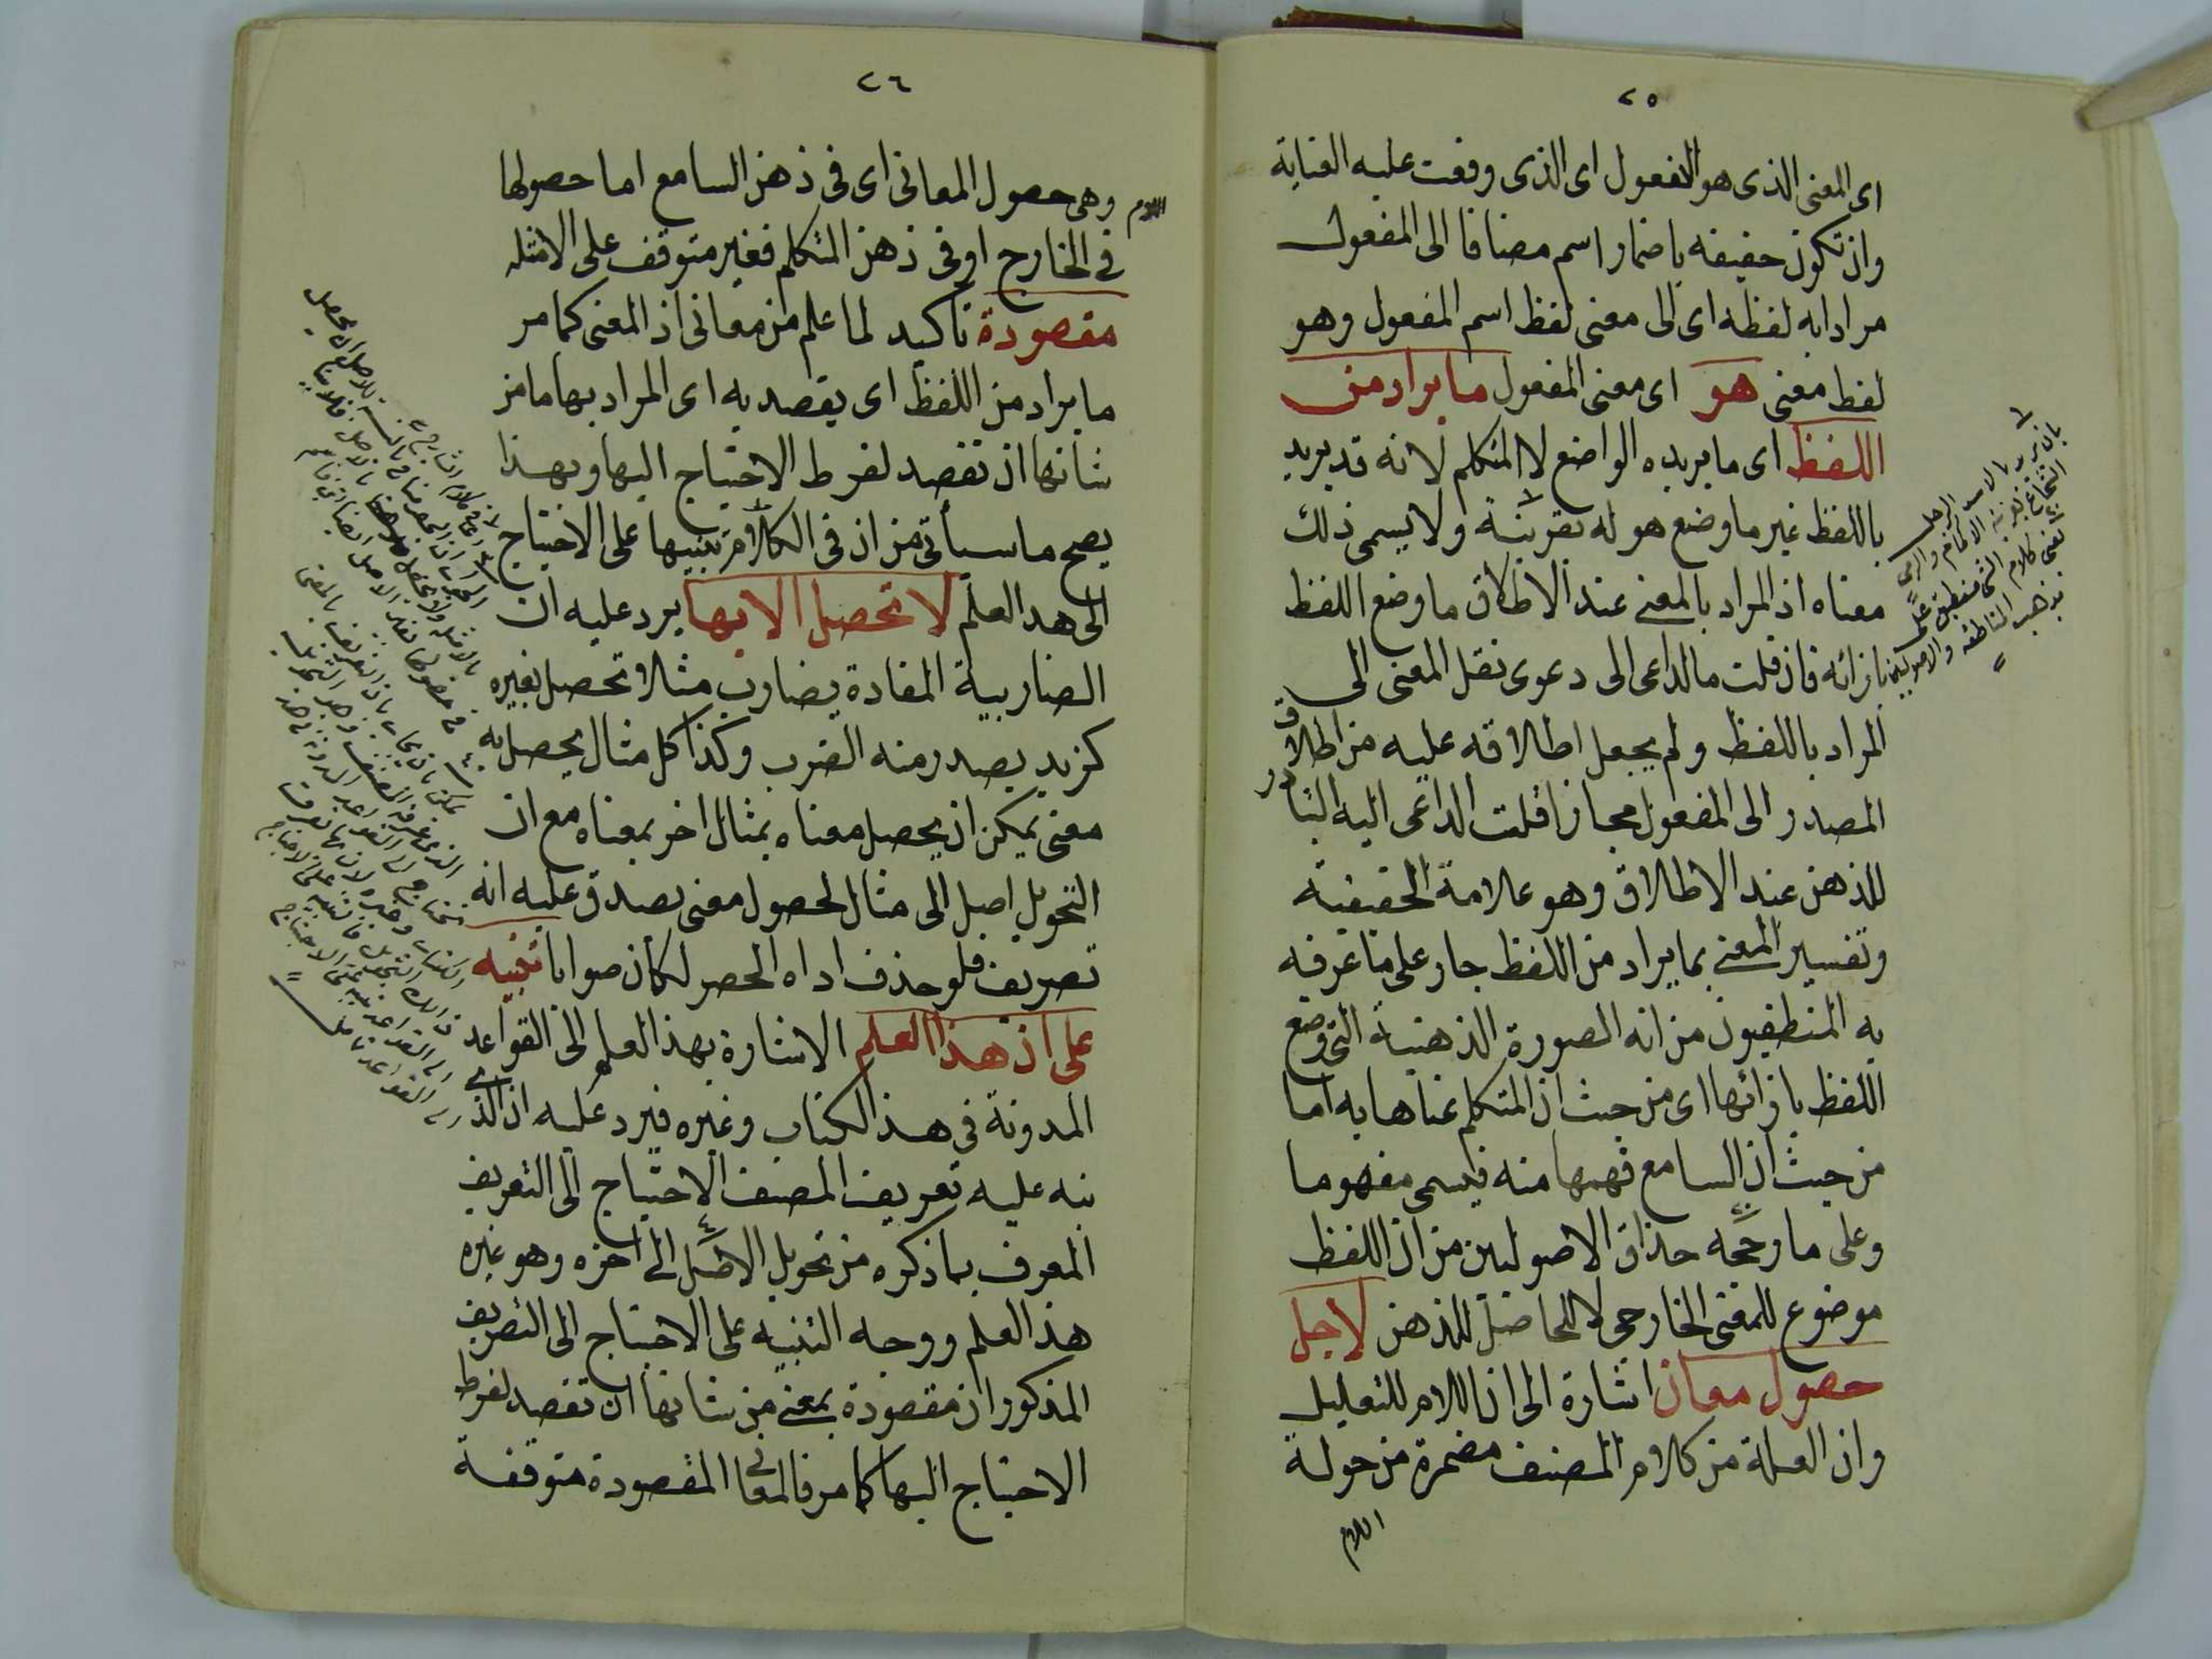 ٢٥
اى المعنى الذى هو المفعول اى الذى وقعت عليه العناية
وان تكون حقيقه باضمار اسم مضافا الى المفعول
مرادا به لفظه اى الى معنى لفظ اسم المفعول وهو
لفظ معنى هو اى معنى المفعول ما يراد من
اللفظ اى ما يريده الواضع لا المتكلم لانه قد يريد
باللفظ غير ما وضع هو له بقرينة ولا يسمى ذلك
معناه اذ المراد بالمعنى عند الاطلاق ما وضع اللفظ
بازائه فان قلت ما الداعى الى دعوى نقل المعنى الى
المراد باللفظ ولم يجعل اطلاقه عليه من اطلاق
المصدر الى المفعول مجازا قلت الداعى اليه التبادر
للذهن عند الاطلاق وهو علامة الحقيقية
وتفسير المعنى بما يراد من اللفظ جار على ما عرفه
به المنطقيون من انه الصورة الذهنية التى وضع
اللفظ بازائها اى من حيث ان المتكلم عناها به اما
من حيث ان السامع فهمها منه فيسمى مفهوما
وعلى ما رجحه حذاق الاصوليين من ان اللفظ
موضوع للمعنى الخارجى لا للحاصل للذهن لاجل
حصول معان اشارة الى ان اللام للتعليل
وان العلة من كلام المصنف مضمرة من حولة
اللام
بان يريد بالاسد الرجل
الشجاع بقرينة الحمام والرمى
يعنى كلام الشا منطبق على
مذهب المناطقه والاصوليين
٢٦
اللام وهى حصول المعانى اى فى ذهن السامع اما حصولها
فى الخارج او فى ذهن المتكلم فغير متوقف على الامثله
مقصودة تأكيد لما علم من معانى اذ المعنى كما مر
ما يراد من اللفظ اى يقصد به اى المراد بها ما من
شانها ان تقصد لفرط الاحتياج اليها وبهذا
يصح ما سيأتى من ان فى الكلام تنبيها على الاحتياج
الى هذا العلم لا تحصل الا بها يرد عليه ان
الضاربية المفادة بضارب مثلا تحصل بغيره
كزيد يصدر منه الضرب وكذا كل مثال يحصل به
معنى يمكن ان يحصل معناه بمثال اخر بمعناه مع ان
التحويل اصل الى مثال لحصول معنى يصدق عليه انه
تصريف فلو حذف اداه الحصر لكان صوابا تنبيه
على ان هذا العلم الاشارة بهذا العلم الى القواعد
المدونة فى هذا الكتاب وغيره فيرد عليه ان الذى
نبه عليه تعريف المصنف الاحتياج الى التعريف
المعرف بما ذكره من تحويل الاصل الى اخره وهو غيره
هذا العلم ووجه التنبيه على الاحتياج الى التصريف
المذكور ان مقصودة بمعنى من شانها ان تقصد لفرط
الاحتياج اليها كما مر فالمعانى المقصودة متوقفة